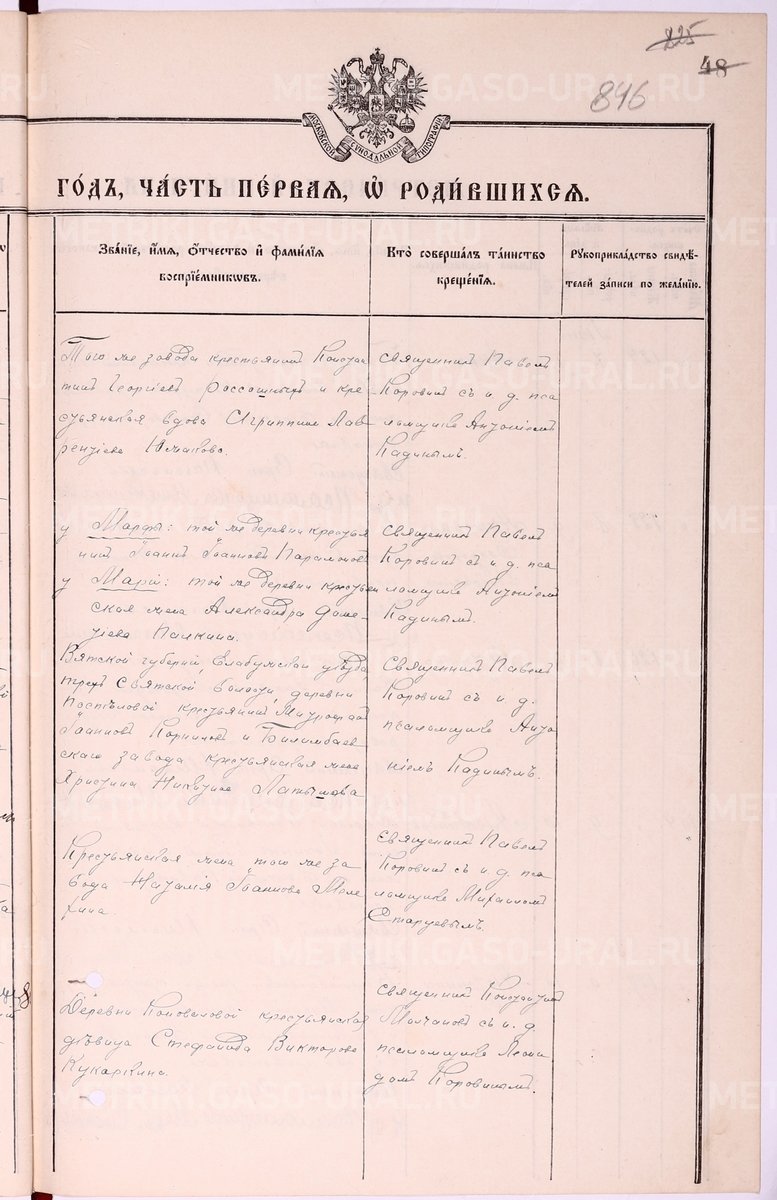 225
48
846
МОСКОВСКОЙ СѴНОДАЛЬНОЙ ТИПОГРАФІИ
ГО́ДЪ, ЧА́СТЬ ПЕ́РВАЯ, Ѡ҆ РОДИ́ВШИХСЯ.
Зва́нїе, и҆́мя, ѻ҆́тчество и҆ фами́лїя
воспрїе́мниковъ.
Кто̀ соверша́лъ та́инство
креще́нїя.
Рꙋкоприкла́дство свидѣ́-
телей за́писи по жела́нїю.
Того же завода крестьянинъ Констан
тинъ Георгіевъ Россошныхъ и кре
стьянская вдова Агриппина Лав
рентіева
Священникъ Павелъ
Коровинъ съ и. д. пса
ломщика Антоніемъ
Кадинымъ.
у Марѳы: той же деревни крестья
нинъ Іоаннъ Іоанновъ Парамоновъ
у Маріи: той же деревни крестьян
ская жена Александра Доме
тіева Палкина.
Священникъ Павелъ
Коровинъ съ и. д. пса
ломщика Антоніемъ
Кадинымъ.
Вятской губерніи, Елабужской уѣзда
Святской волости, деревни
Поспѣловой крестьянинъ Митрофанъ
Іоанновъ Корниловъ и Билимбаев
скаго завода крестьянская жена
Христина Никитина Латышова
Священникъ Павелъ
Коровинъ съ и. д.
псаломщика Анто
ніемъ Кадинымъ.
Крестьянская жена того же за
вода Наталія Іоаннова Теле
гина
Священникъ Павелъ
Коровинъ съ и. д. пса
ломщика Михаиломъ
Старцевымъ.
Деревни Коноваловой крестьянская
дѣвица Стефанида Викторова
Кукаркина.
Священникъ Константинъ
Молчановъ съ и. д.
псаломщика Леони
домъ Коровинымъ.
METRIKI.GASO-URAL.RU